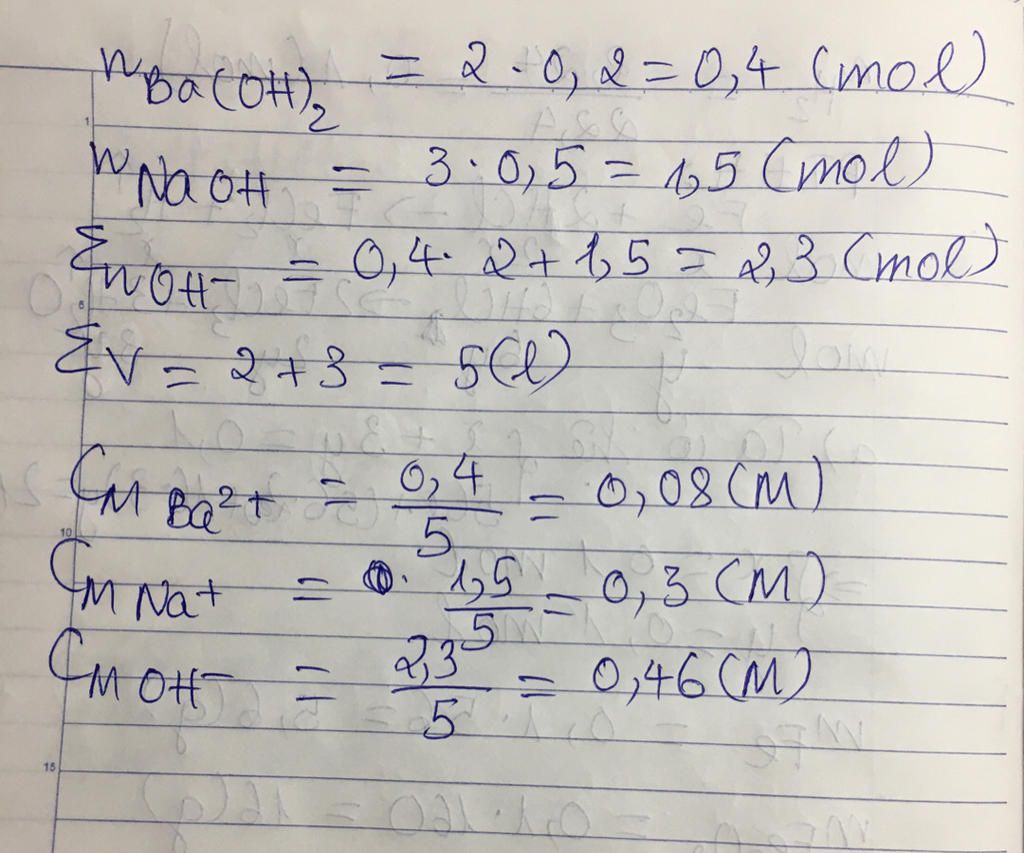 n Ba(OH)₂ = 2 · 0,2 = 0,4 (mol)
n NaOH = 3 · 0,5 = 1,5 (mol)
Σ n OH⁻ = 0,4 · 2 + 1,5 = 2,3 (mol)
Σ V = 2 + 3 = 5 (l)
C M Ba²⁺ = 0,4/5 = 0,08 (M)
C M Na⁺ = 1,5/5 = 0,3 (M)
C M OH⁻ = 2,3/5 = 0,46 (M)